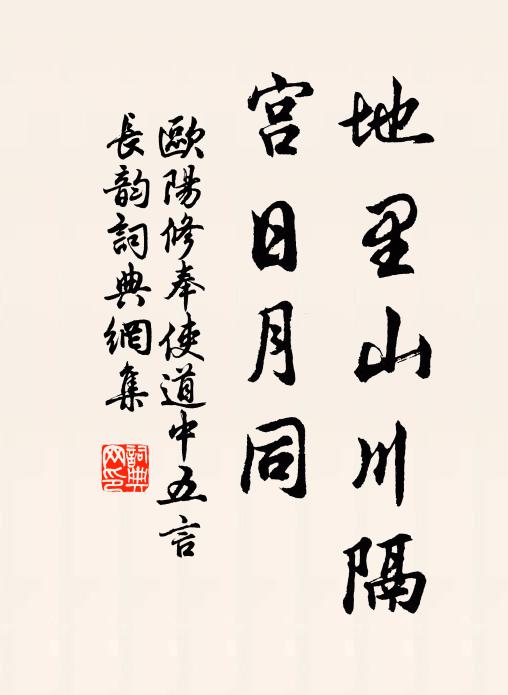 地里山川隔
宫日月同
歐陽修奉使道中五言
長韵詞典網集
詞典网印